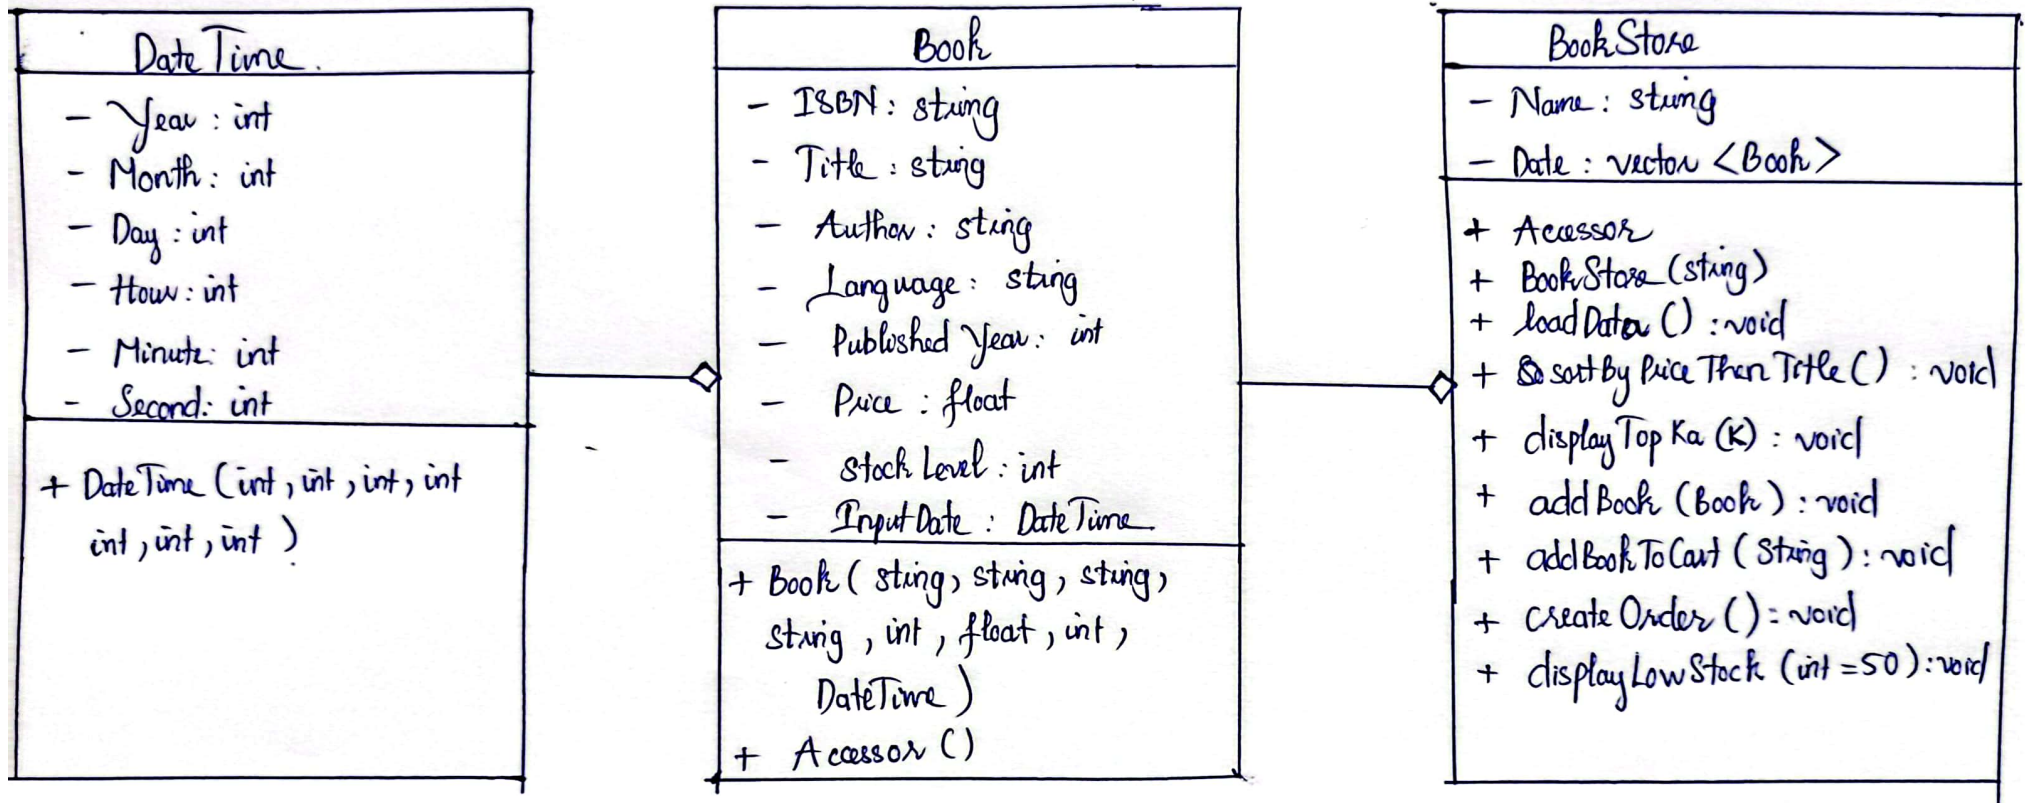 DateTime.
- Year : int
- Month : int
- Day : int
- Hour : int
- Minute : int
- Second : int
+ DateTime (int, int, int, int
int, int, int)
Book
- ISBN : string
- Title : string
- Author : sting
- Language : sting
- Published Year : int
- Price : float
- Stock Level : int
- InputDate : DateTime
+ Book ( sting, sting, sting,
string, int, float, int,
DateTime )
+ Accessor ()
BookStore
- Name : string
- Date : vector <Book>
+ Accessor
+ BookStore (sting)
+ loadData () : void
+ sortBy Price Then Title () : void
+ displayTop Ka (K) : void
+ addBook (Book) : void
+ addBookToCart (String) : void
+ createOrder () : void
+ displayLowStock (int = 50) : void